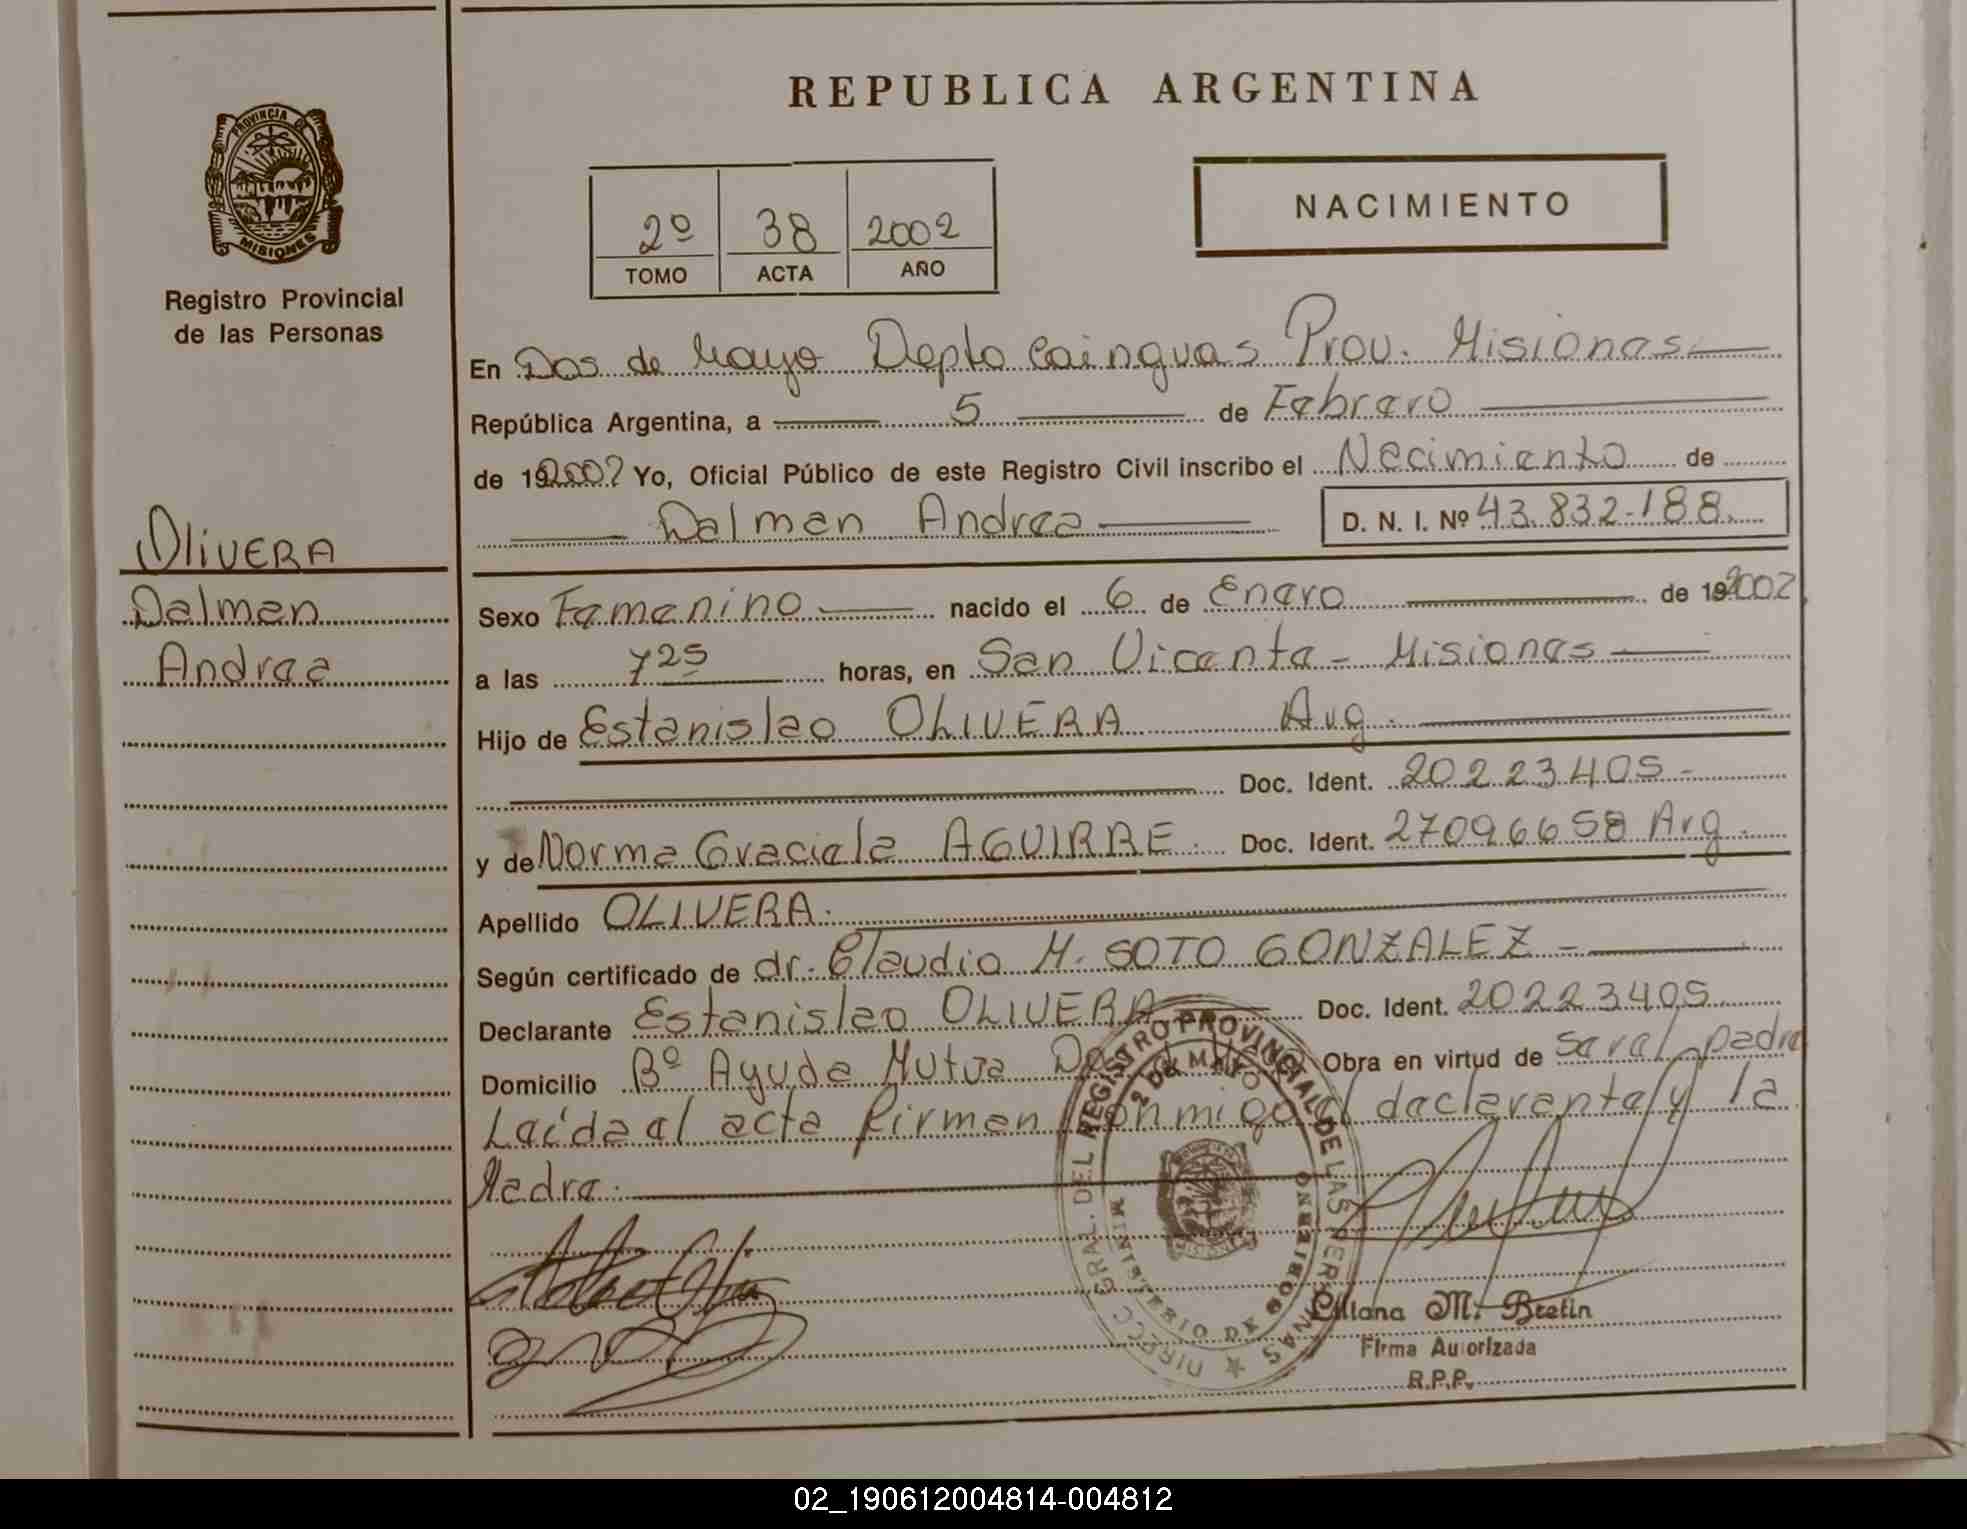 REPUBLICA ARGENTINA
PROVINCIA DE
MISIONES
Registro Provincial
de las Personas
NACIMIENTO
2º 38 2002
TOMO ACTA AÑO
En Dos de Mayo Depto Cainguas Prov. Misiones
República Argentina, a 5 de Febrero
de 192002 Yo, Oficial Público de este Registro Civil inscribo el Nacimiento de
Dalman Andrea D. N. I. Nº 43.832.188.
OLIVERA
Dalman
Andrea
Sexo Femenino nacido el 6 de Enero de 192002
a las 7 25 horas, en San Vicente - Misiones
Hijo de Estanislao OLIVERA Arg.
Doc. Ident. 20223405-
y de Norma Graciela AGUIRRE. Doc. Ident. 27096658 Arg.
Apellido OLIVERA.
Según certificado de dr. Claudio M. SOTO GONZALEZ -
Declarante Estanislao OLIVERA Doc. Ident. 20223405
Domicilio Bº Ayuda Mutua Obra en virtud de ser el padre
Leída el acta firman conmigo el declarante y la
Madre.
DIRECC. GRAL. DEL REGISTRO PROVINCIAL DE LAS PERSONAS
2 DE MAYO
MINISTERIO DE GOBIERNO
Liliana M. Bretin
Firma Autorizada
R.P.P.
02_190612004814-004812